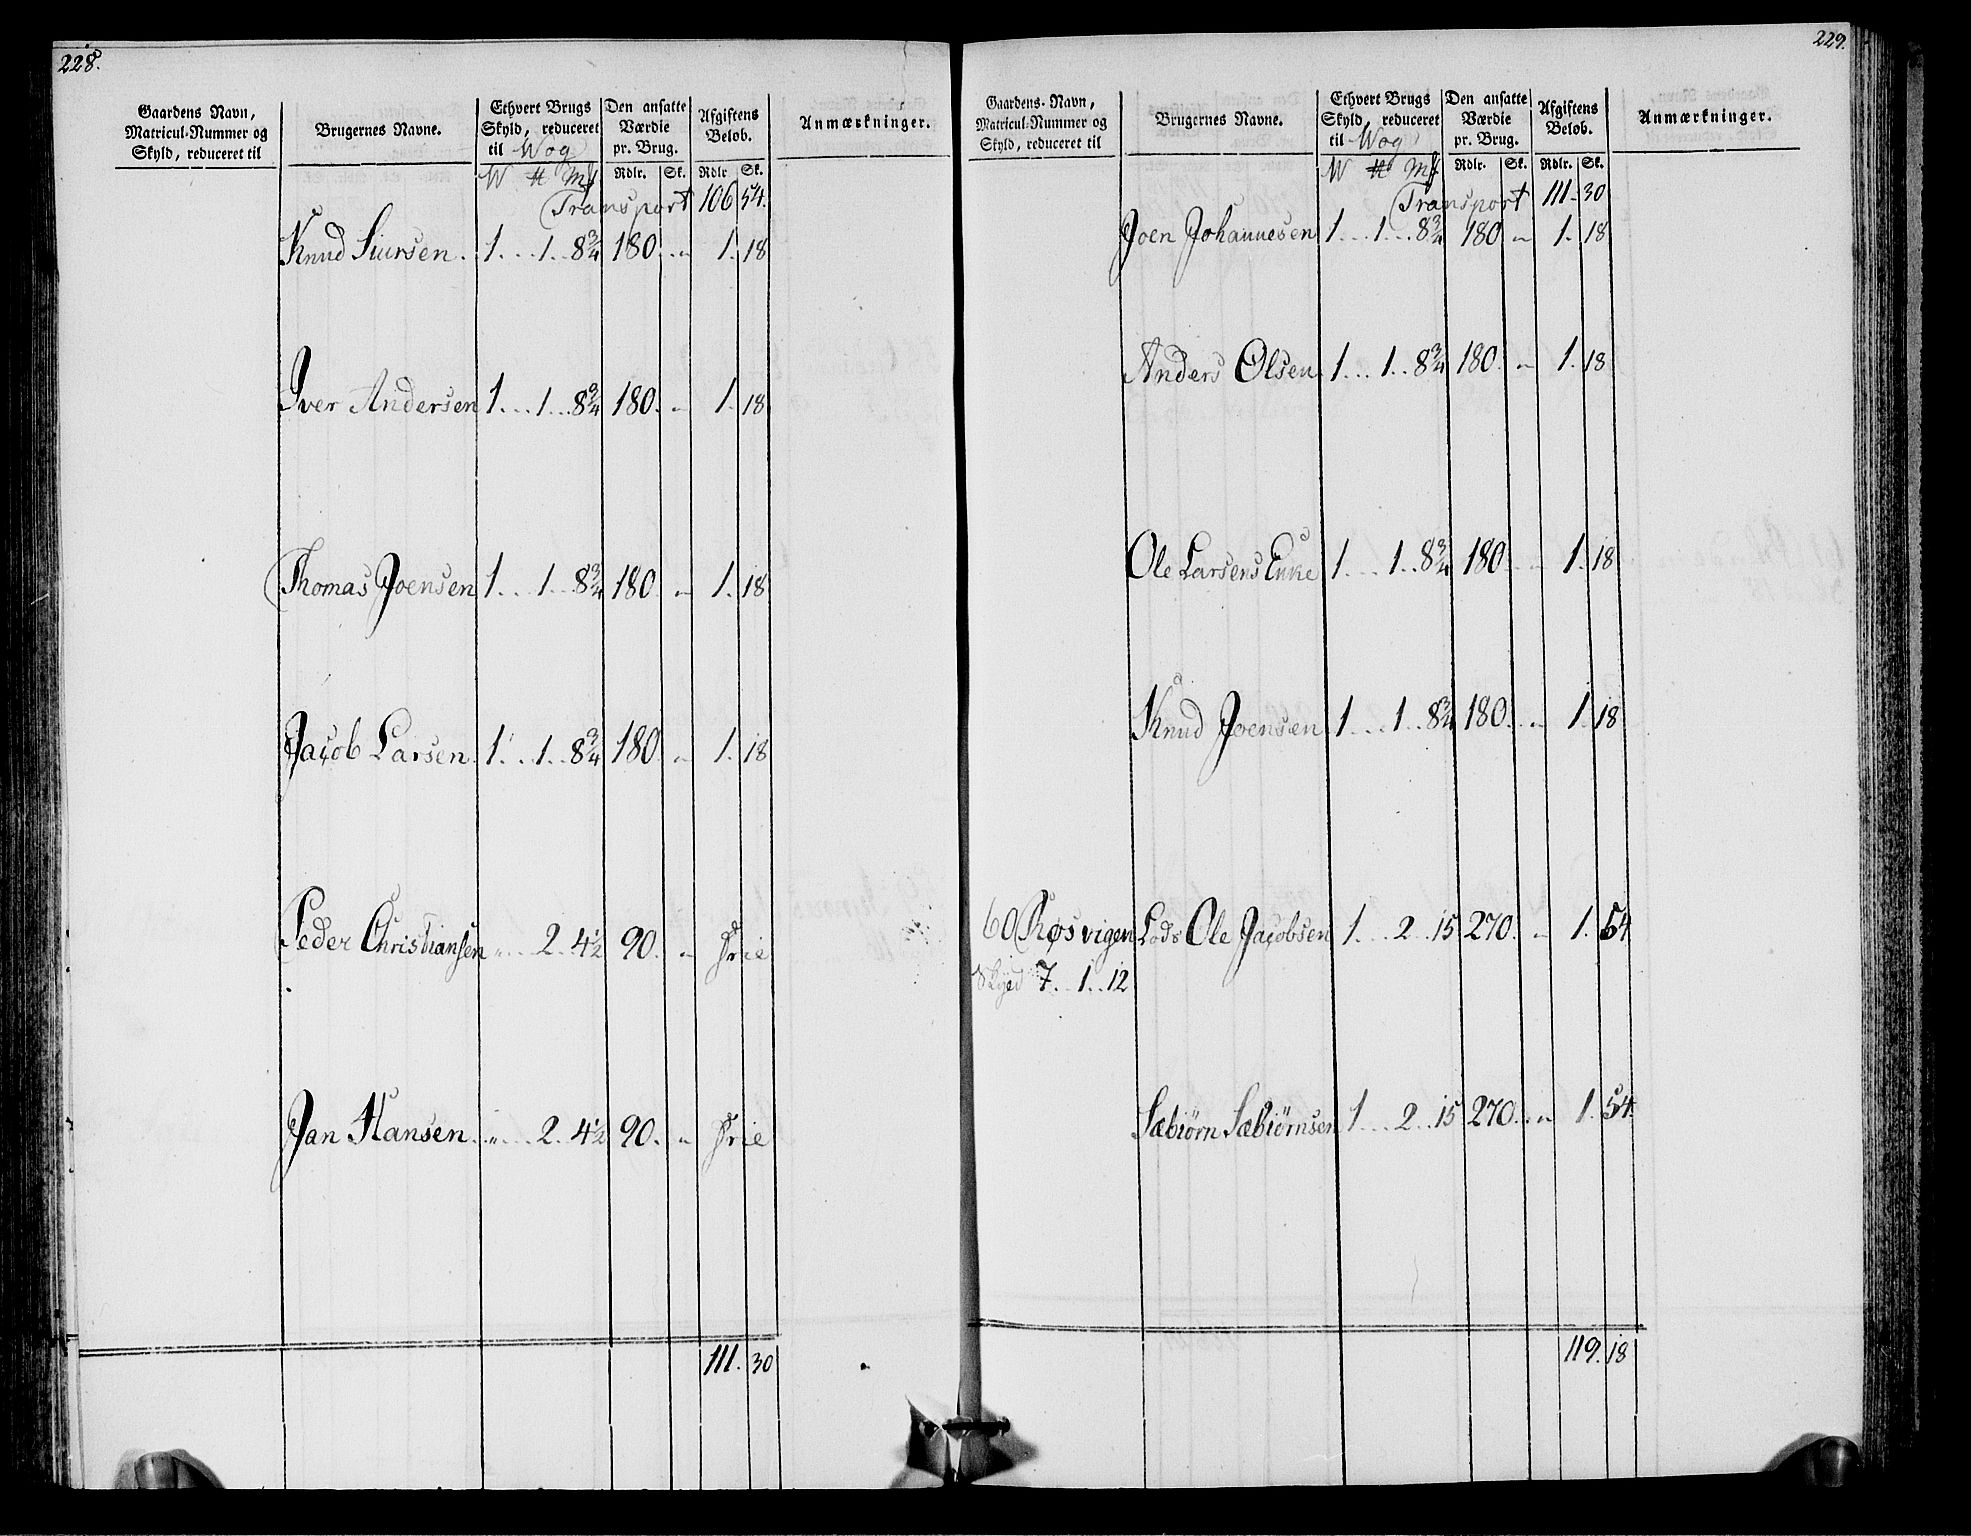 228.
Gaardens Navn, Matricul-Nummer og Skyld, reduceret til
Brugernes Navne.
Ethvert Brugs Skyld, reduceret til Wog
Den ansatte Værdie pr. Brug.
Afgiftens Beløb.
Anmærkninger.
W ℔ Mk Rdlr. Sk. Rdlr. Sk.
Transport 106 54.
Knud Siursen. 1...1..8¾ 180..„ 1. 18
Iver Andersen 1...1...8¾ 180. „ 1. 18
Thomas Joensen 1...1..8¾ 180. „ 1. 18
Jacob Larsen. 1...1..8¾ 180. „ 1. 18
Peder Christiansen „...2..4½ 90. „ frie
Jan Hansen. „...2..4½ 90. „ frie
111. 30
229.
Gaardens-Navn, Matricul-Nummer og Skyld, reduceret til
Brugernes Navne.
Ethvert Brugs Skyld, reduceret til Wog
Den ansatte Værdie pr. Brug.
Afgiftens Beløb.
Anmærkninger.
W ℔ Mk Rdlr. Sk. Rdlr. Sk.
Transport 111. 30
Joen Johannesen 1...1...8¾ 180 „ 1. 18
Anders Olsen 1...1..8¾ 180. „ 1. 18
Ole Larsens Enke 1...1..8¾ 180 „ 1. 18
Knud Joensen 1...1..8¾ 180. „ 1. 18
60 Røsvigen Lods Ole Jacobsen 1...2..15 270. „ 1. 54
Skyld 7..1..12
Sæbiørn Sæbiørnsen 1...2..15 270. „ 1. 54.
119. 18